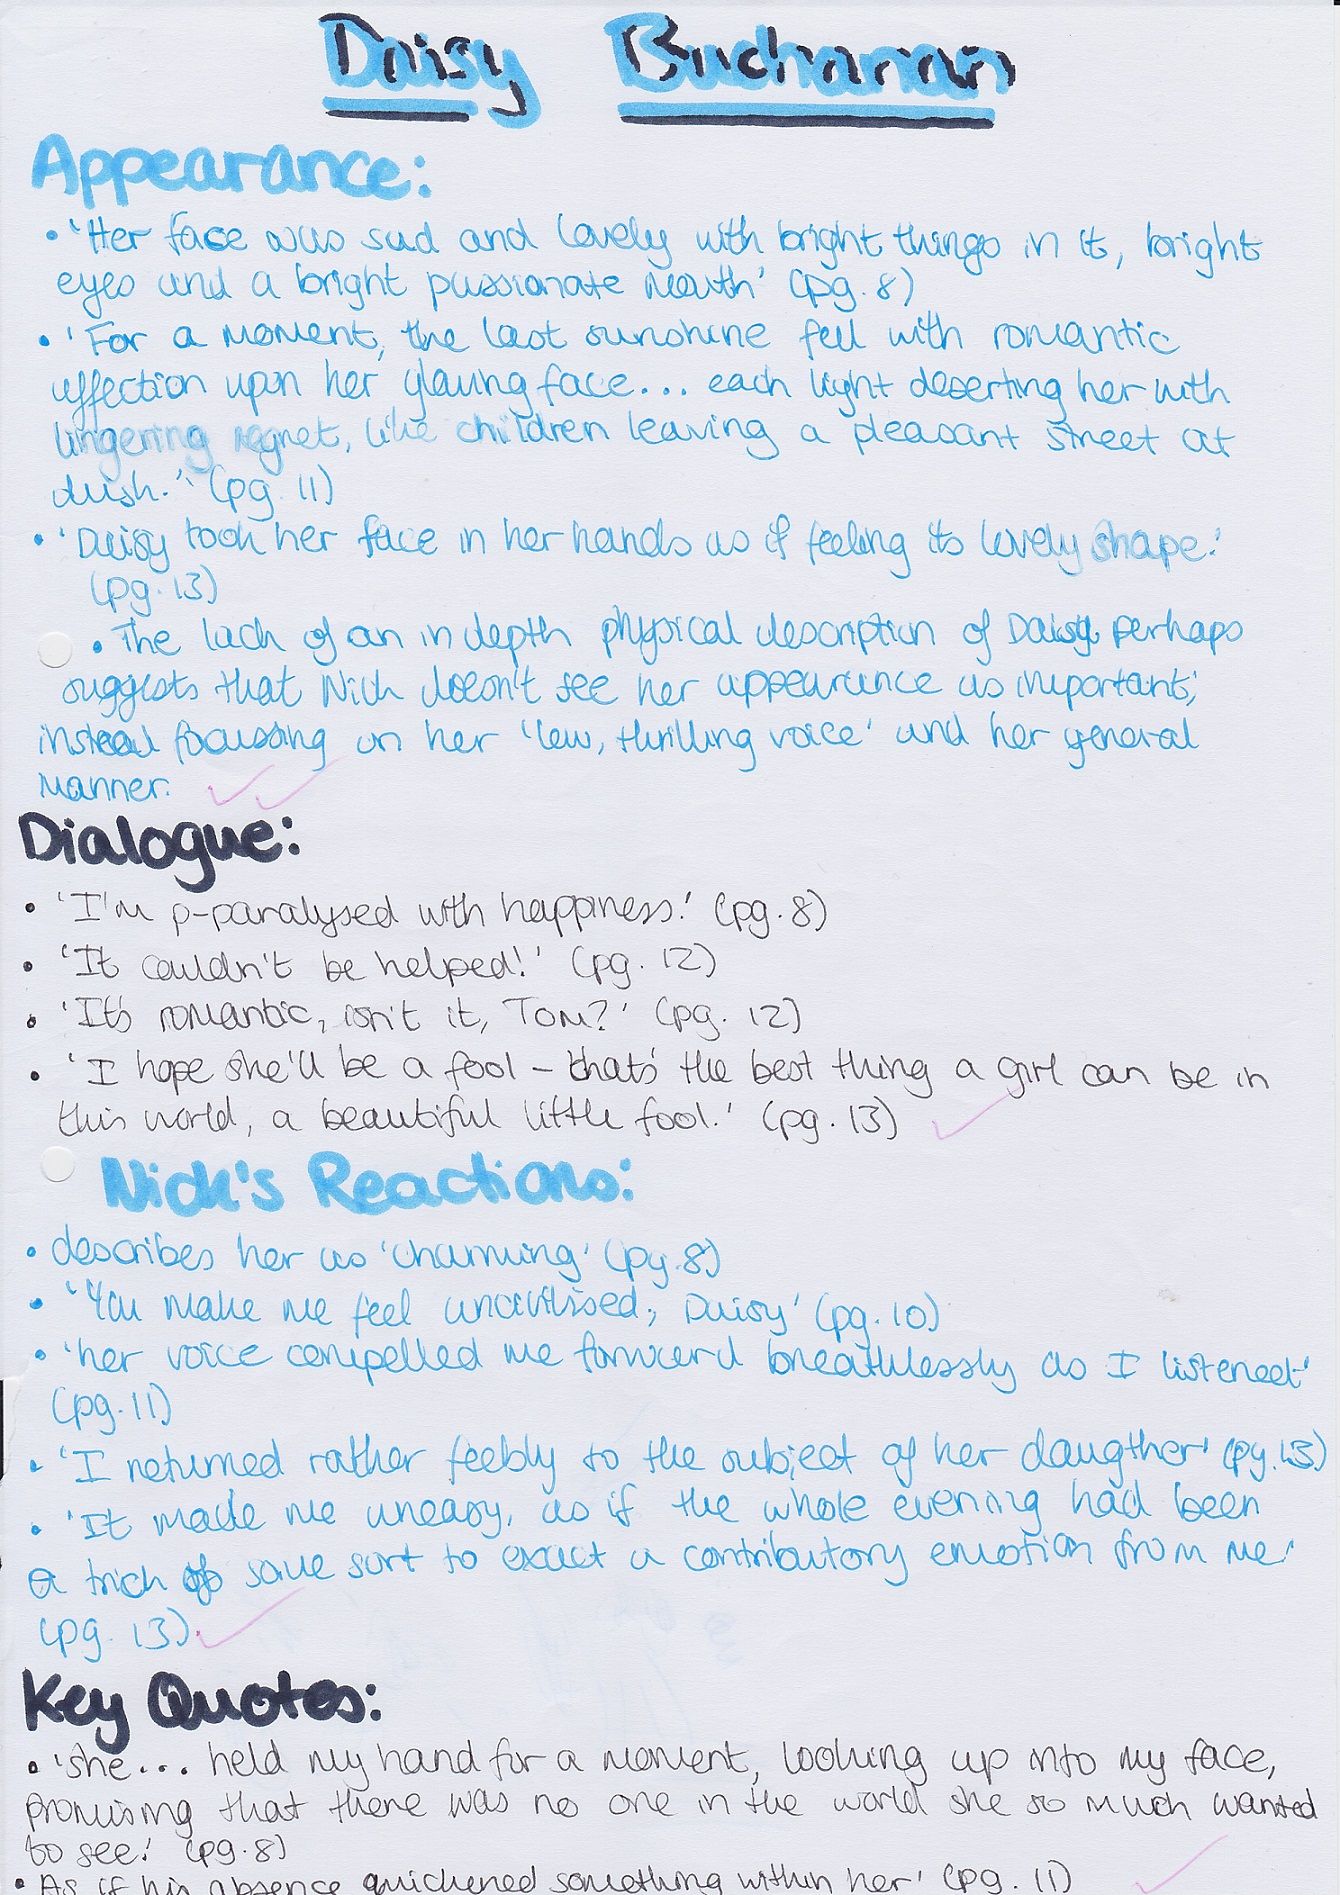 Daisy Buchanan
Appearance:
• 'Her face was sad and lovely with bright things in it, bright
eyes and a bright passionate mouth' (pg. 8)
• 'For a moment, the last sunshine fell with romantic
affection upon her glowing face... each light deserting her with
lingering regret, like children leaving a pleasant street at
dusk.' (pg. 11)
• 'Daisy took her face in her hands as if feeling its lovely shape.'
(pg. 13)
• The lack of an in depth physical description of Daisy perhaps
suggests that Nick doesn't see her appearance as important;
instead focussing on her 'low, thrilling voice' and her general
manner.
Dialogue:
• 'I'm p-paralysed with happiness.' (pg. 8)
• 'It couldn't be helped!' (pg. 12)
• 'It's romantic, isn't it, Tom?' (pg. 12)
• 'I hope she'll be a fool - that's the best thing a girl can be in
this world, a beautiful little fool.' (pg. 13)
Nick's Reactions:
• describes her as 'charming' (pg. 8)
• 'You make me feel uncivilised, Daisy' (pg. 10)
• 'her voice compelled me forward breathlessly as I listened'
(pg. 11)
• 'I returned rather feebly to the subject of her daugther' (pg. 13)
• 'It made me uneasy, as if the whole evening had been
a trick of some sort to exact a contributory emotion from me.'
(pg. 13).
Key Quotes:
• 'she... held my hand for a moment, looking up into my face,
promising that there was no one in the world she so much wanted
to see.' (pg. 8)
• As if his absence quickened something within her' (pg. 11)